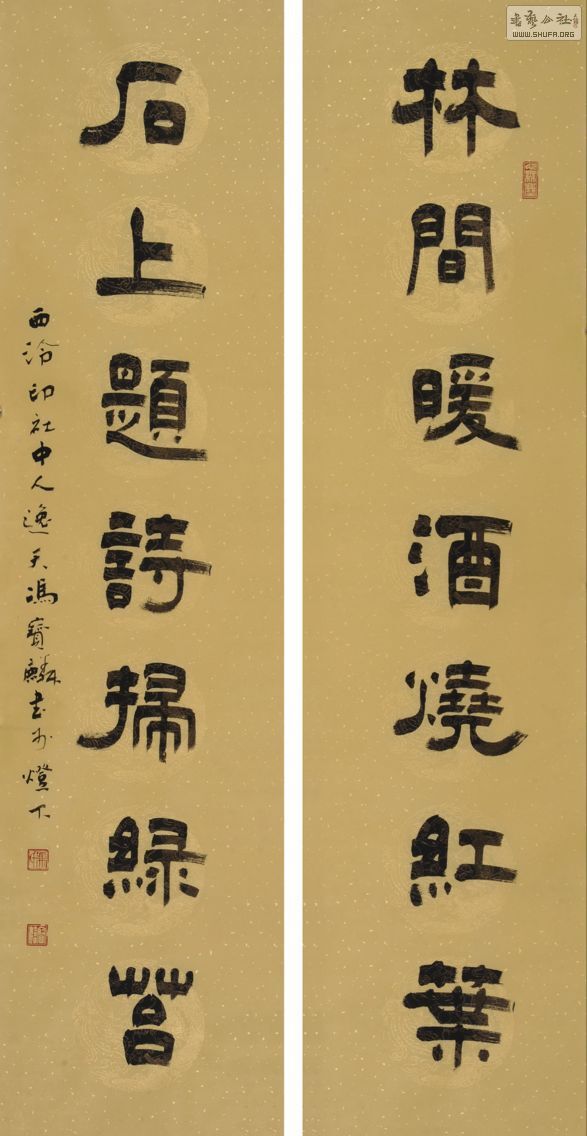 林間暖酒燒紅葉
石上題詩掃綠苔
西泠印社中人逸天馮寶麟書於燈下
書藝公社
WWW.SHUFA.ORG